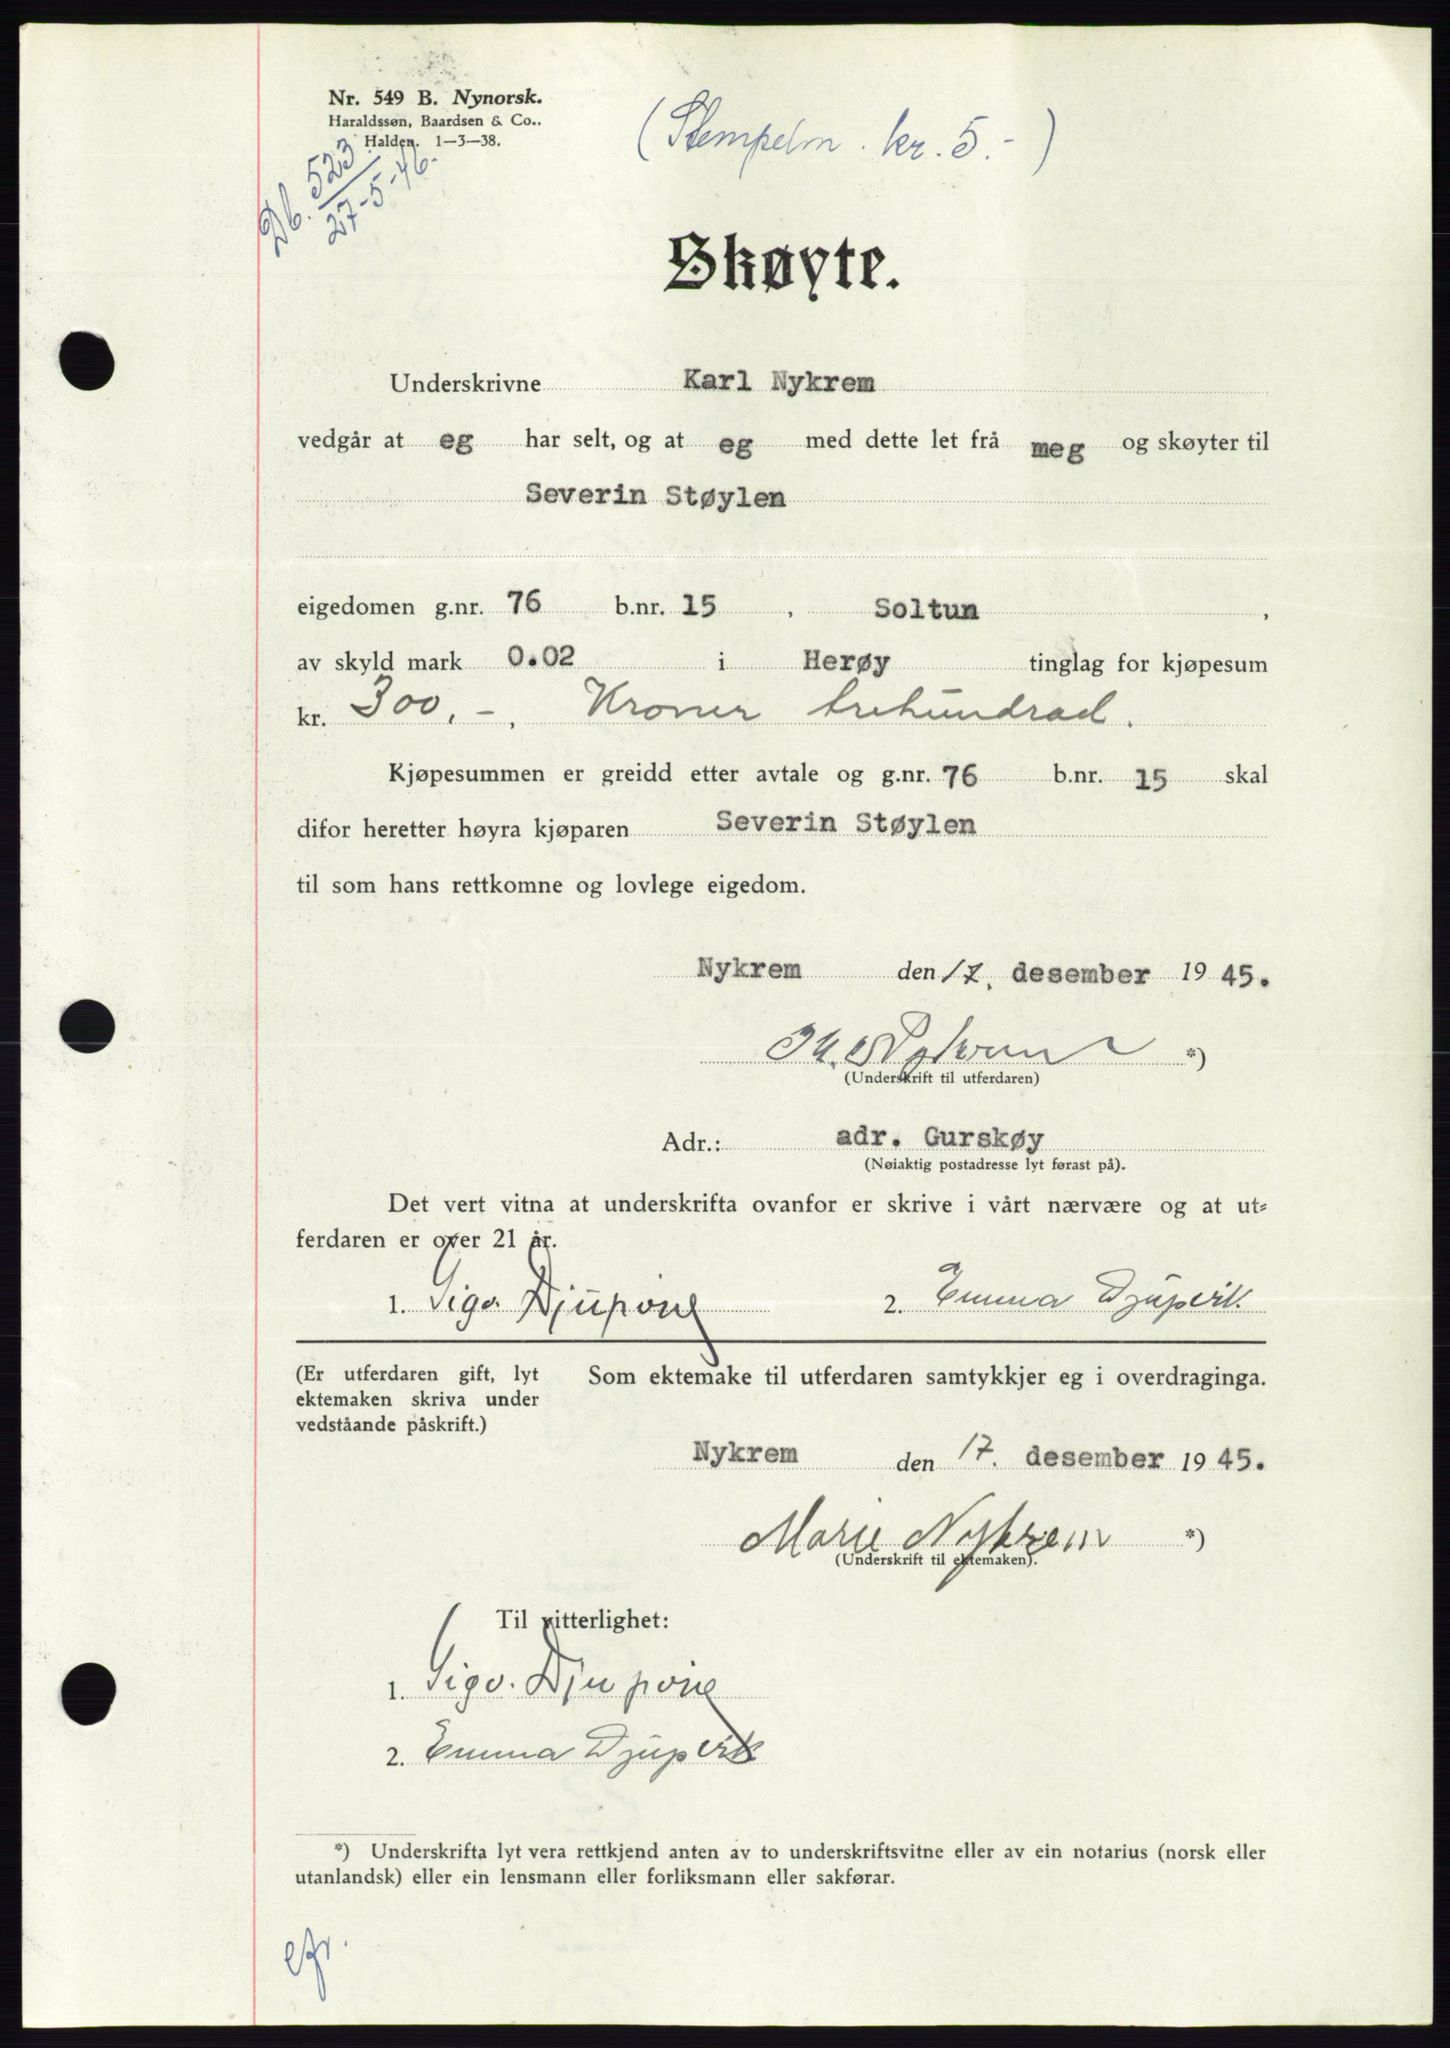 Nr. 549 B. Nynorsk.
Haraldssøn, Baardsen & Co..
Halden. 1—3—38.
Db. 523
27-5-46.
(Stempelm. kr. 5.-)
Skøyte.
Underskrivne Karl Nykrem
vedgår at eg har selt, og at eg med dette let frå meg og skøyter til
Severin Støylen
eigedomen g.nr. 76 b.nr. 15 , Soltun ,
av skyld mark 0.02 i Herøy tinglag for kjøpesum
kr. 300,-, Kroner trehundrad.
Kjøpesummen er greidd etter avtale og g.nr. 76 b.nr. 15 skal
difor heretter høyra kjøparen Severin Støylen
til som hans rettkomne og lovlege eigedom.
Nykrem den 17. desember 19 45.
Nykrem *)
(Underskrift til utferdaren)
Adr.: adr. Gurskøy
(Nøiaktig postadresse lyt førast på).
Det vert vitna at underskrifta ovanfor er skrive i vårt nærvære og at ut-
ferdaren er over 21 år.
1. Sigv. Djupvik 2. Emma Djupvik.
(Er utferdaren gift, lyt
ektemaken skriva under
vedståande påskrift.)
Som ektemake til utferdaren samtykkjer eg i overdraginga.
Nykrem den 17. desember 19 45.
Marie Nykrem *)
(Underskrift til ektemaken).
Til vitterlighet:
1. Sigv. Djupvik
2. Emma Djupvik
*) Underskrifta lyt vera rettkjend anten av to underskriftsvitne eller av ein notarius (norsk eller
utanlandsk) eller ein lensmann eller forliksmann eller sakførar.